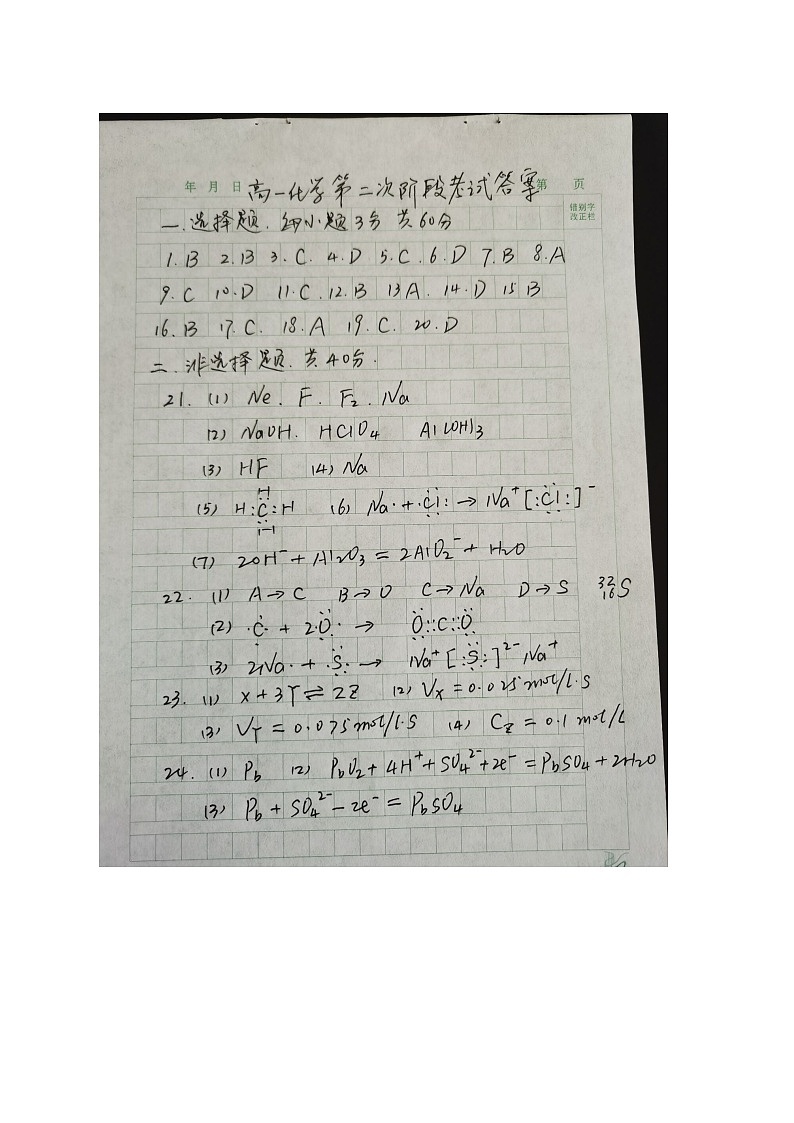 年 月 日 高一化学第二次阶段考试答案 第 页
错别字
改正栏
一.选择题.每小题3分 共60分
1.B 2.B 3.C. 4.D 5.C. 6.D 7.B 8.A
9.C 10.D 11.C. 12.B 13A. 14.D 15B
16.B 17.C. 18.A 19.C. 20.D
二.非选择题.共40分.
21. (1) Ne. F. F₂. Na
(2) NaOH. HClO₄ Al(OH)₃
(3) HF (4) Na
H
(5) H:C:H (6) Na· + ·Cl: → Na⁺[:Cl:]⁻
H
(7) 2OH⁻ + Al₂O₃ = 2AlO₂⁻ + H₂O
22. (1) A→C B→O C→Na D→S ³²₁₆S
(2) ·C· + 2·O· → O::C::O
(3) 2Na· + ·S: → Na⁺[:S:]²⁻Na⁺
23. (1) X+3Y⇌2Z (2) Vₓ = 0.025mol/L·S
(3) V_Y = 0.075mol/L·S (4) C_Z = 0.1 mol/L
24. (1) Pb (2) PbO₂+4H⁺+SO₄²⁻+2e⁻ = PbSO₄+2H₂O
(3) Pb + SO₄²⁻ − 2e⁻ = PbSO₄